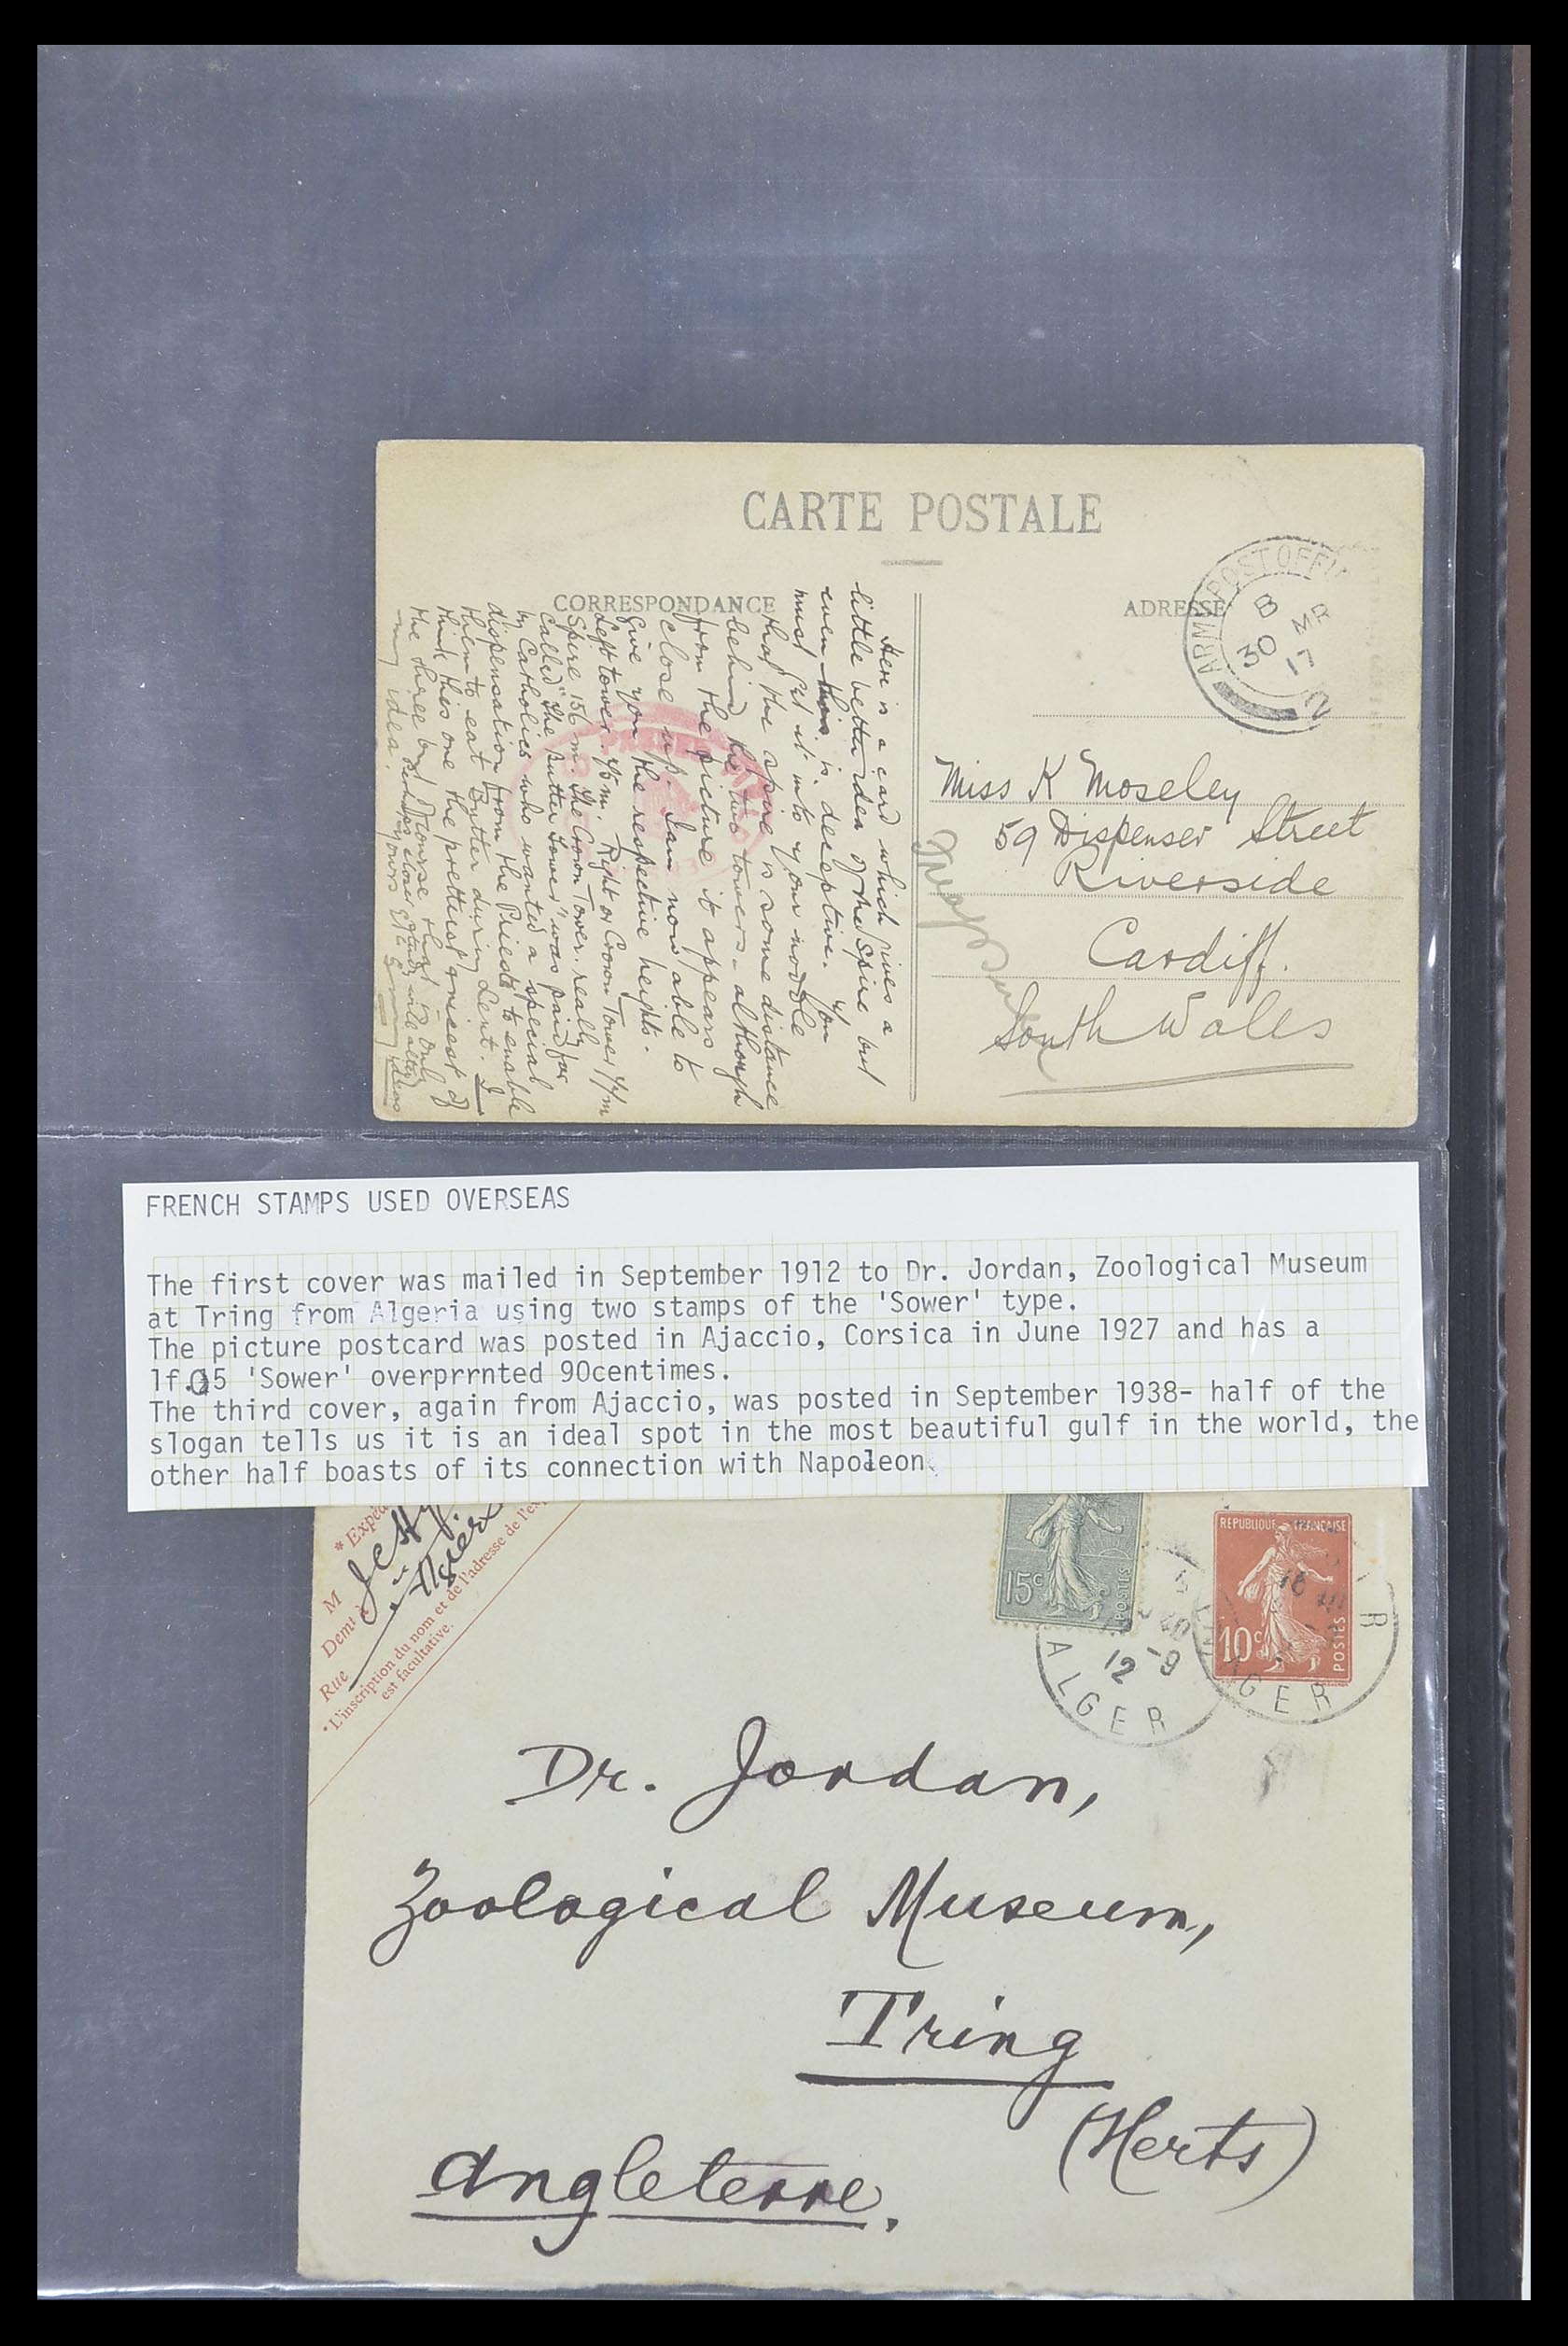 CARTE POSTALE
CORRESPONDANCE
ADRESSE
ARMY POST OFFI
B
30 MR
17
2
Here is a card which gives a
little better idea of the Spire but
even this is deceptive. You
must get it into your noddle
that the spire is some distance
behind the two towers - although
from the picture it appears
close up. I am now able to
give you the respective heights.
Left tower. 75 m. Right or Crown Tower 77 m
Spire 156 m. The Crown Tower. really
called "The Butter Tower" was paid for
by Catholics who wanted a special
dispensation from the Priests to enable
them to eat Butter during Lent. I
think this one the prettiest & nicest of
the three but of course that is only
my idea.
yours
Miss K Moseley
59 Dispenser Street
Riverside
Cardiff.
South Wales
FRENCH STAMPS USED OVERSEAS
The first cover was mailed in September 1912 to Dr. Jordan, Zoological Museum
at Tring from Algeria using two stamps of the 'Sower' type.
The picture postcard was posted in Ajaccio, Corsica in June 1927 and has a
1f.05 'Sower' overprrnted 90centimes.
The third cover, again from Ajaccio, was posted in September 1938- half of the
slogan tells us it is an ideal spot in the most beautiful gulf in the world, the
other half boasts of its connection with Napoleon
* Expéd
M
Demt à Alger
Rue
*L'inscription du nom et de l'adresse de l'ex
est facultative.
15c
POSTES
REPUBLIQUE FRANCAISE
10c
POSTES
12 -9
ALGER
ALGER
Dr. Jordan,
Zoological Museum,
Tring
(Herts)
Angleterre.